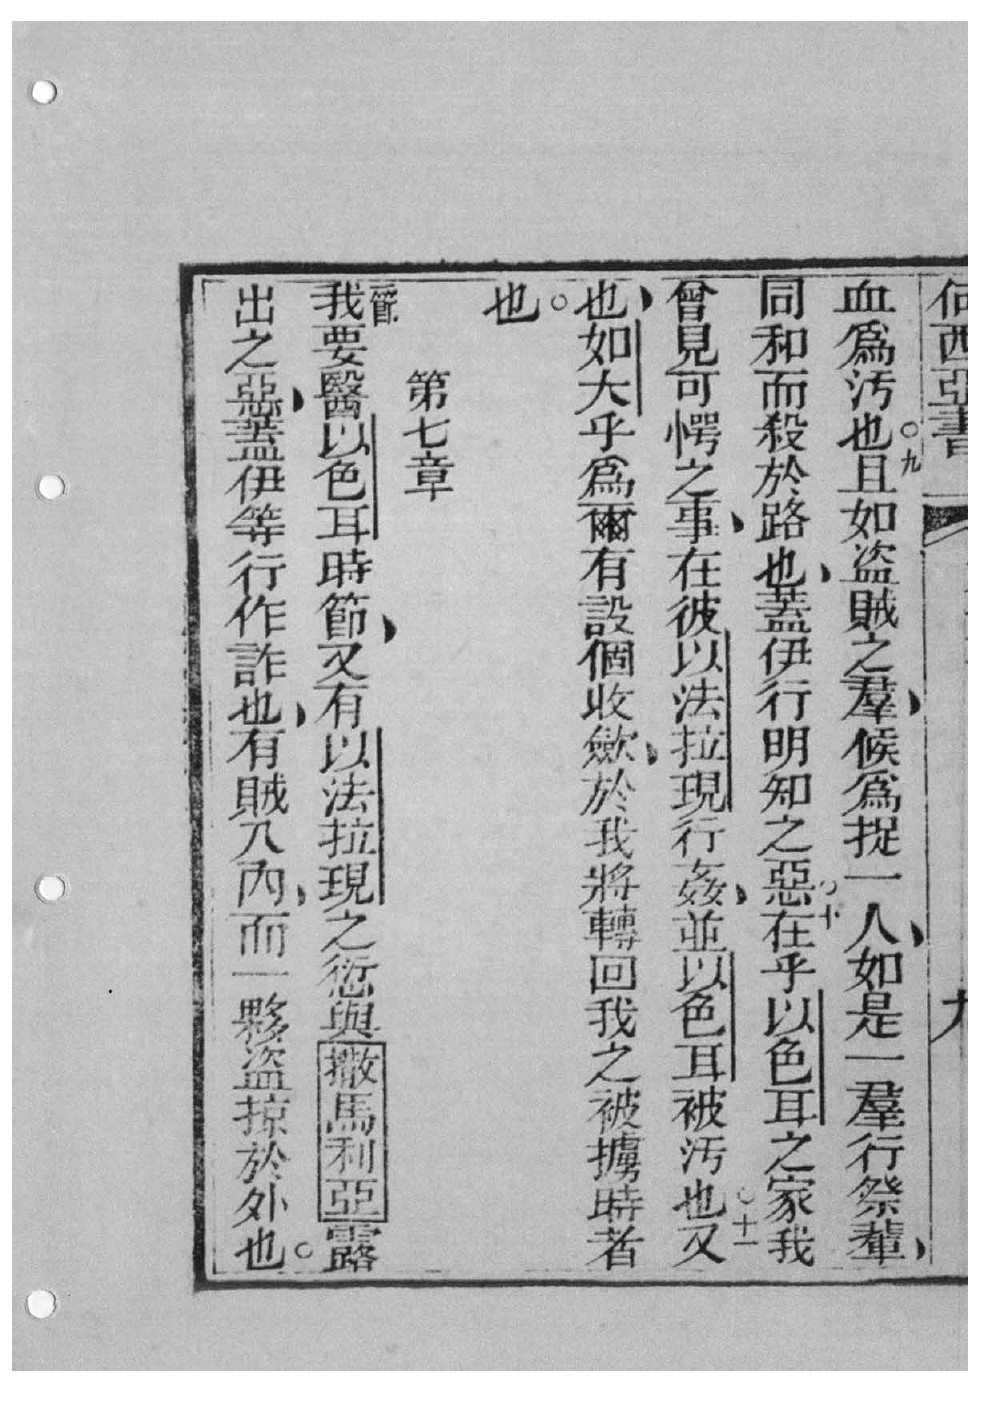 何西亞書 九
血爲汚也○九且如盜賊之羣、候爲捉一人、如是一羣行祭輩、
同和而殺於路也、蓋伊行明知之惡○十在乎以色耳之家我
曾見可愕之事、在彼以法拉現行姦、並以色耳被汚也○十一又
也、如大乎爲爾有設個收歛、於我將轉回我之被擄時者
也。
第七章
一節我要醫以色耳時節、又有以法拉現之愆與撒馬利亞露
出之惡、蓋伊等行作詐也、有賊入內、而一夥盜掠於外也。